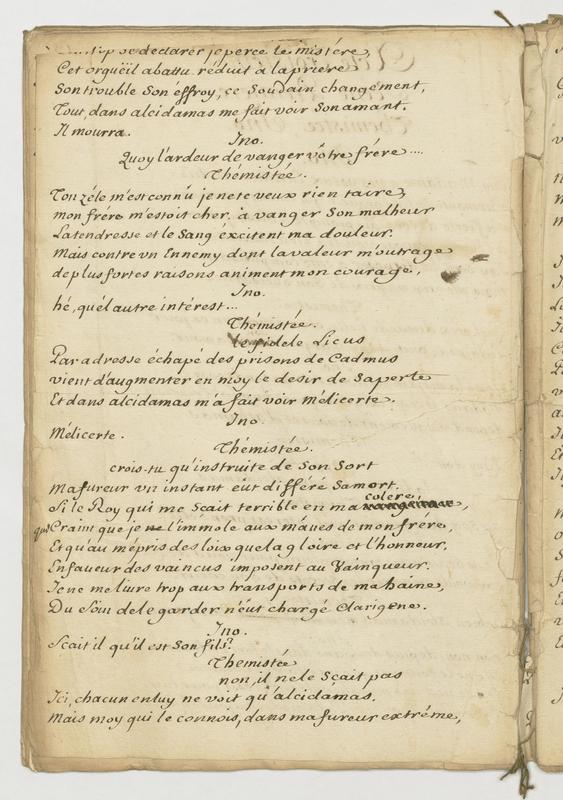 se declarer je perce le mistére,
Cet orgüeil abattu réduit a la priere
Son trouble Son effroy, ce Soudain changement,
Tout, dans alcidamas me fait voir Son amant.
Il mourra.
Ino.
Quoy l'ardeur de vanger vôtre frére....
Thémistée.
Ton zéle m'est connu je ne te veux rien taire,
mon frére m'estoit cher, à vanger Son malheur
La tendresse et le Sang éxcitent ma douleur.
Mais contre vn Ennemy dont la valeur m'outrage
de plus fortes raisons animent mon courage,
Ino.
hé, quél autre intérest...
Thémistée.
le fidele Licus
Par adresse échapé des prisons de Cadmus
vient d'augmenter en moy le desir de Sa perte
Et dans alcidamas m'a fait voir Mélicerte.
Ino.
Mélicerte.
Thémistée.
crois-tu qu'instruite de Son Sort
Ma fureur vn instant eut differé Sa mort.
colere,
Si le Roy qui me Scait terrible en ma vangeance,
que Craint que je ne l'immole aux mânes de mon frére,
Et qu'au mépris des loix que la gloire et l'honneur,
En faueur des vaincus imposent au Vainqueur.
Je ne me livre trop aux transports de ma haine,
Du Soin de le garder n'eut chargé Clarigene.
Ino.
Scait il qu'il est Son fils?
Themistée
non, il ne le Scait pas
Ici, chacun en luy ne voit qu'alcidamas.
Mais moy qui le connois, dans ma fureur extréme,